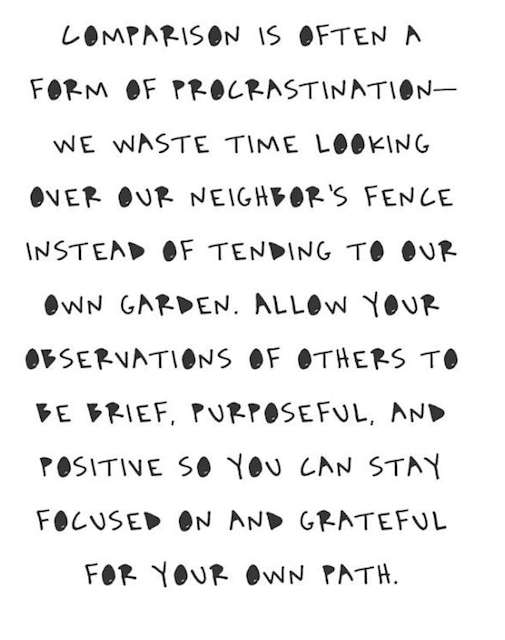 COMPARISON IS OFTEN A
FORM OF PROCRASTINATION—
WE WASTE TIME LOOKING
OVER OUR NEIGHBOR'S FENCE
INSTEAD OF TENDING TO OUR
OWN GARDEN. ALLOW YOUR
OBSERVATIONS OF OTHERS TO
BE BRIEF, PURPOSEFUL, AND
POSITIVE SO YOU CAN STAY
FOCUSED ON AND GRATEFUL
FOR YOUR OWN PATH.